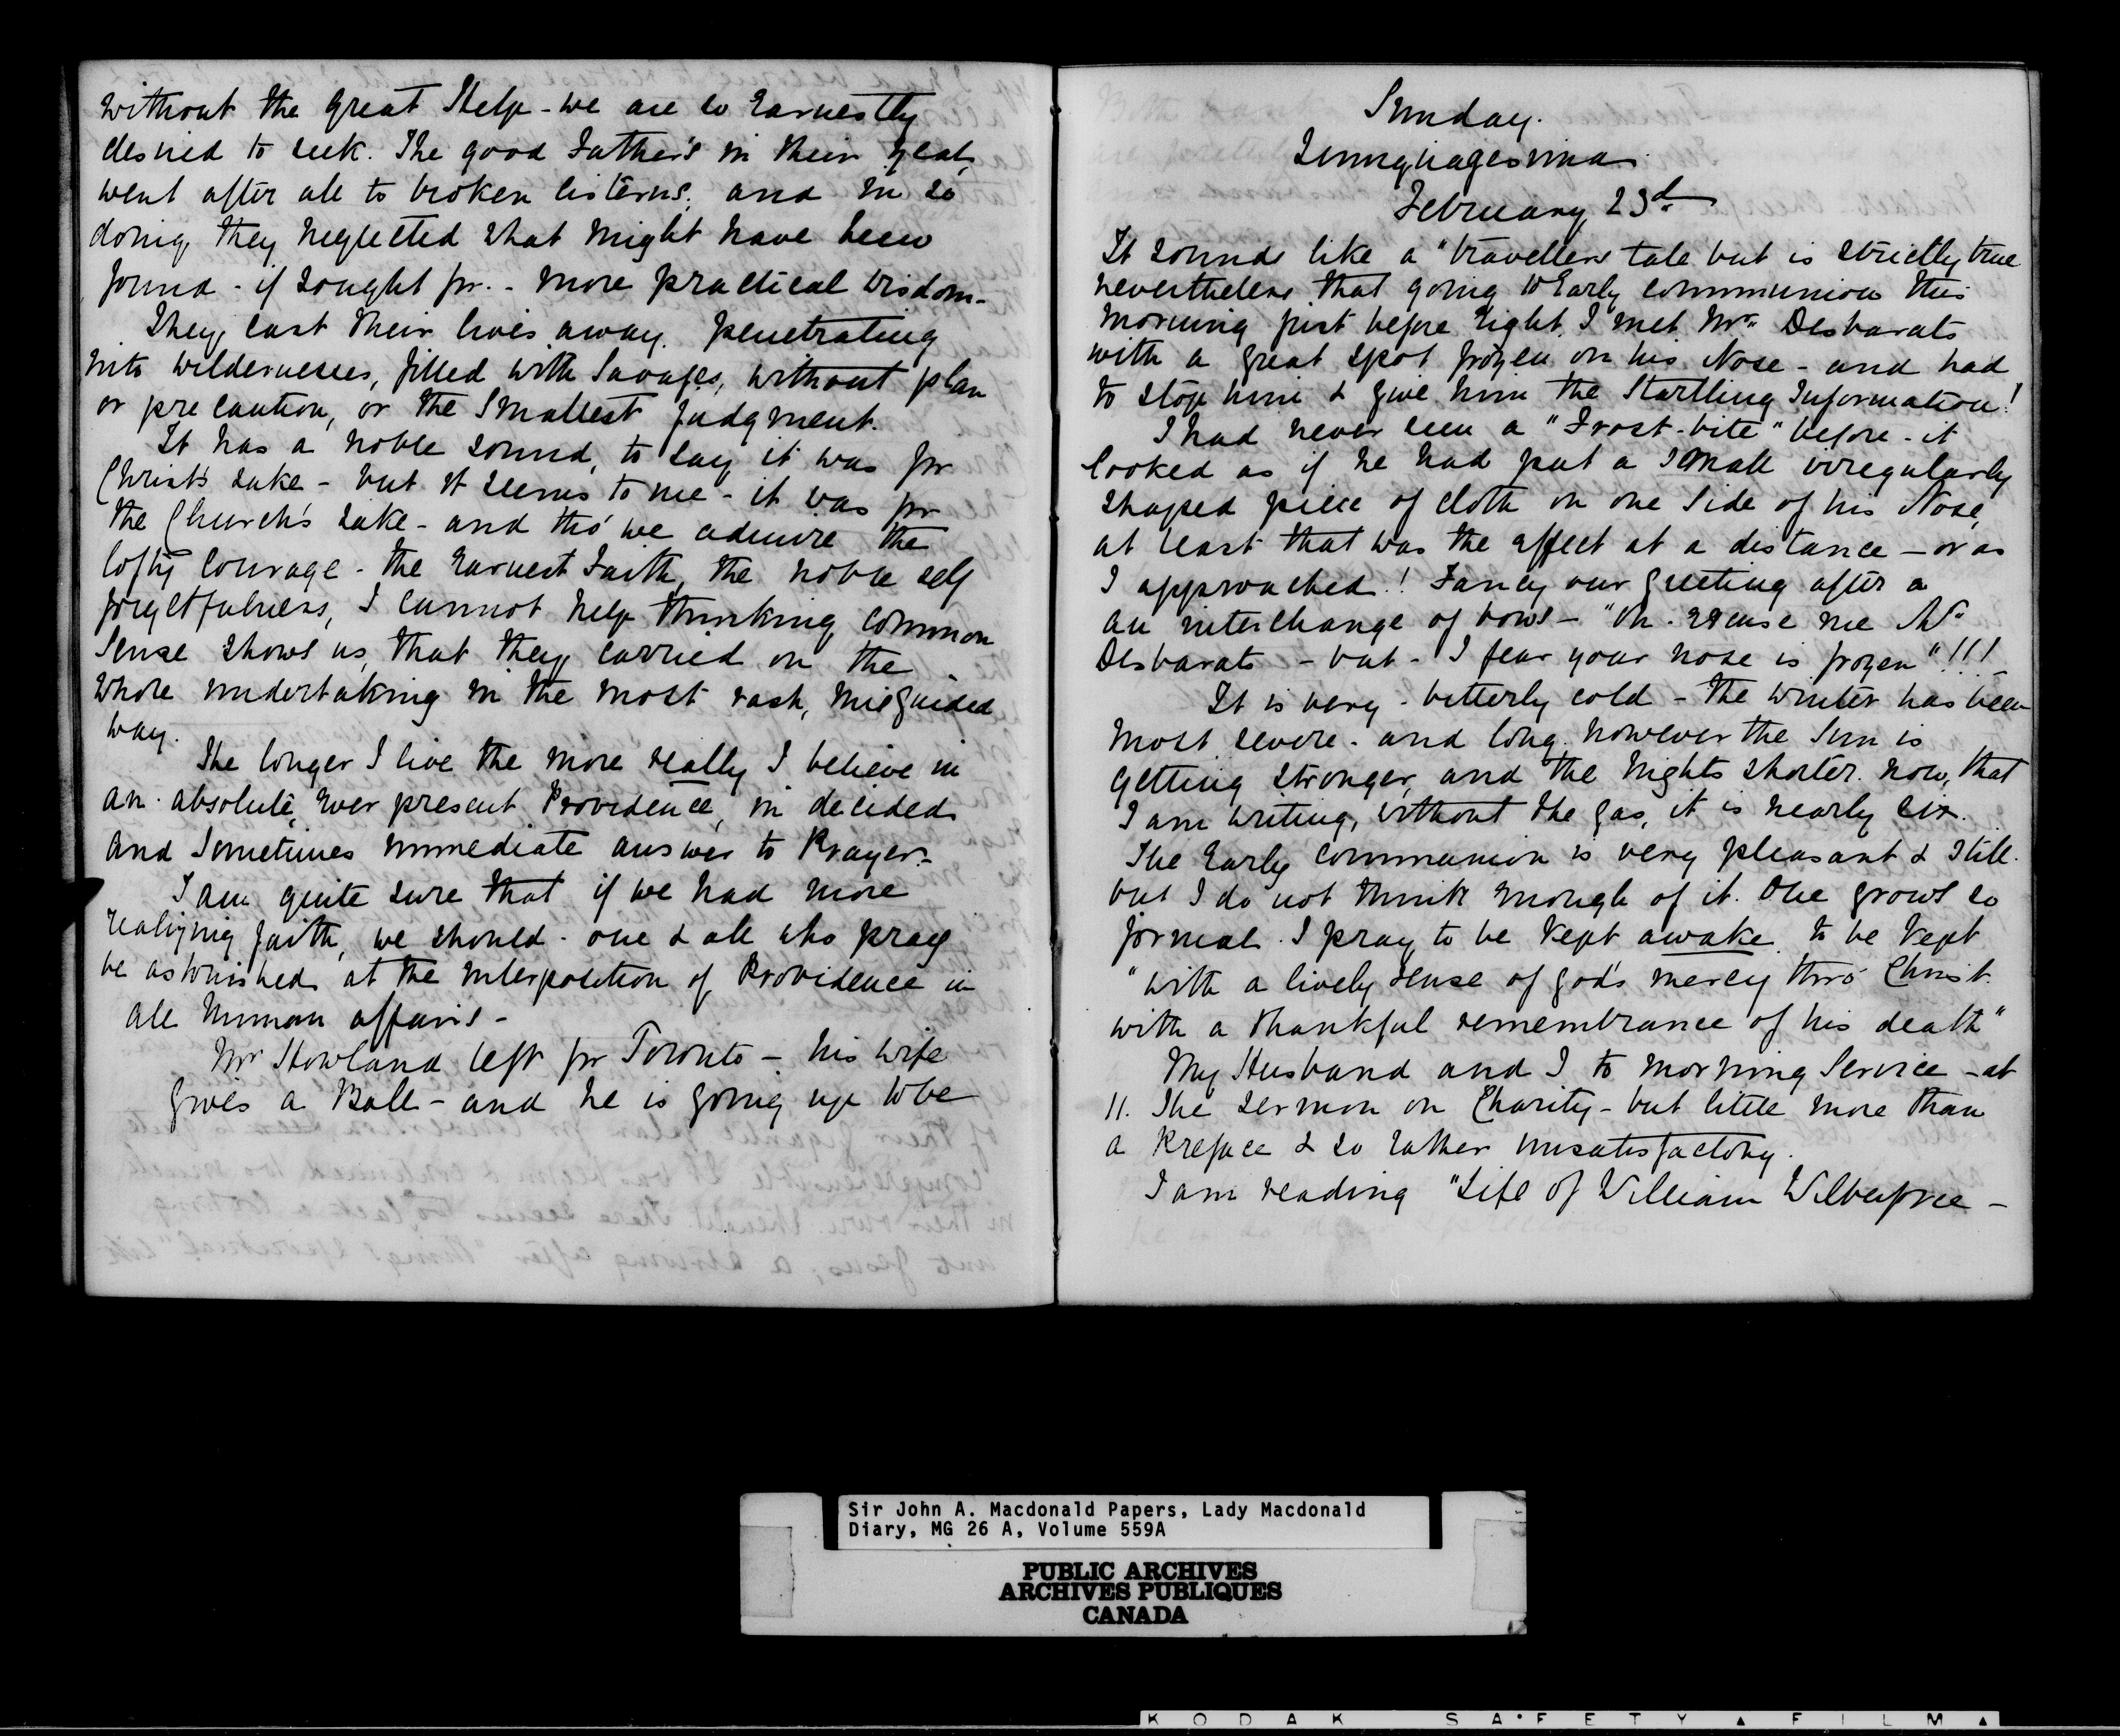 without the great Help - we are so Earnestly
desired to seek. The good Father's in their zeal,
went after all to broken cisterns, and in so
doing, they neglected what might have been
found - if sought for. - more practical wisdom -
They cast their lives away, penetrating
into wildernesses, filled with Savages, without plan
or precaution, or the Smallest judgment.
It has a noble sound, to say it was for
Christ's sake - but it seems to me - it was for
the Church's sake - and tho' we admire the
lofty Courage - the Earnest Faith, the noble self
forgetfulness, I cannot help thinking, common
Sense shows us, that they carried on the
whole undertaking in the most rash, misguided
way.
The longer I live the more really I believe in
an absolute, Ever present Providence, in decided
and Sometimes immediate answer to Prayer.
I am quite sure that if we had more
realizing faith, we should - one & all who pray
be astonished at the interposition of Providence in
all human affairs -
Mr Howland left for Toronto - his wife
gives a Ball - and he is going up to be
Sunday.
Quinquagesima
February 23d
It sounds like a "travellers tale but is strictly true
nevertheless that going to Early Communion this
morning just before Eight, I met Mr. Desbarats
with a great spot frozen on his Nose - and had
to stop him & give him the Startling Information!
I had never seen a "Frost-bite" before - it
looked as if he had put a Small irregularly
shaped piece of cloth on one Side of his Nose,
at least that was the affect at a distance - or as
I approached! Fancy our greeting after a
an interchange of bows - "Oh. Excuse me Mr
Desbarats - but - I fear your nose is frozen"!!!
It is very - bitterly cold - the Winter has been
most severe - and long, however the Sun is
getting stronger, and the Nights shorter. now, that
I am writing, without the gas, it is nearly six.
The Early Communion is very pleasant & still.
but I do not think enough of it. One grows so
formal. I pray to be kept awake, to be kept
"with a lively sense of God's mercy thro' Christ.
with a thankful remembrance of his death"
My Husband and I to morning Service - at
11. The Sermon on Charity - but little more than
a Preface & so rather unsatisfactory.
I am reading "Life of William Wilberforce -
Sir John A. Macdonald Papers, Lady Macdonald
Diary, MG 26 A, Volume 559A
PUBLIC ARCHIVES
ARCHIVES PUBLIQUES
CANADA
KODAK SAFETY FILM